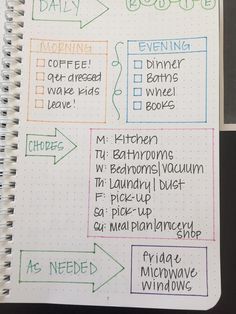 DAILY
MORNING
COFFEE!
get dressed
wake kids
Leave!
EVENING
Dinner
Baths
Wheel
BOOKS
CHORES
M: Kitchen
Tu: Bathrooms
W: Bedrooms|Vacuum
Th: Laundry|Dust
F: pick-up
Sa: pick-up
Su: Mealplan/grocery
shop
AS NEEDED
Fridge
Microwave
Windows